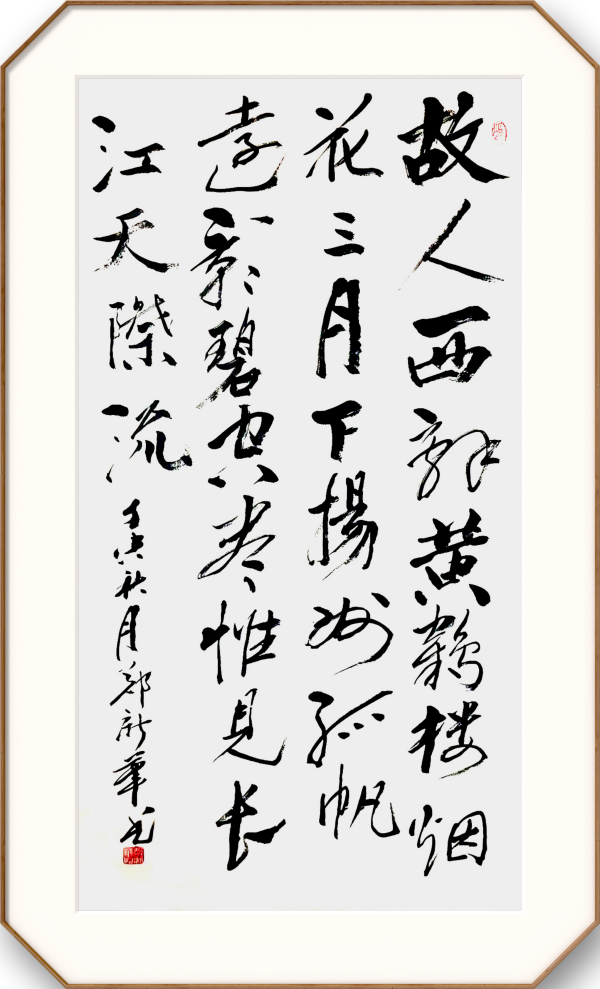 故人西辞黄鹤楼烟
花三月下揚州孤帆
遠影碧空尽惟见长
江天際流
壬寅秋月郑新华书